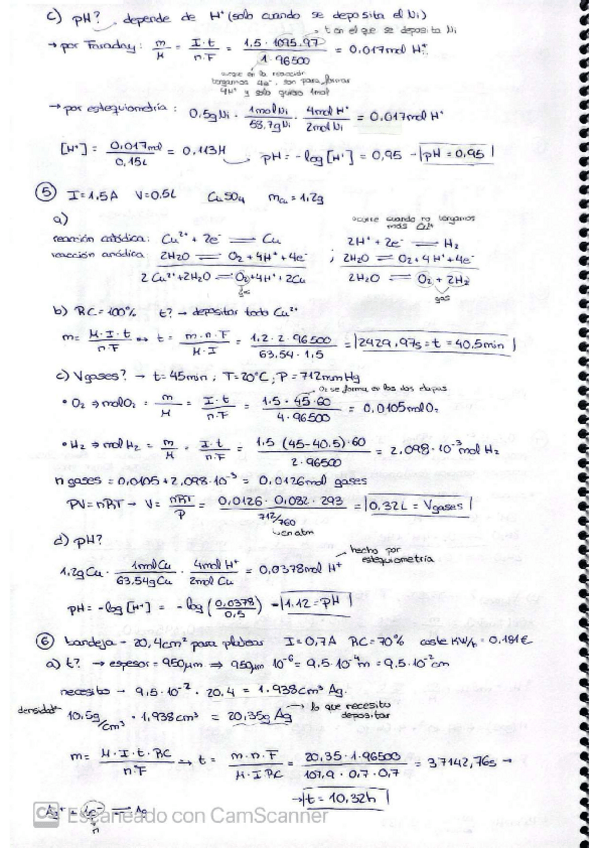 c) pH? depende de H⁺ (solo cuando se deposita el Ni)
= t en el que se deposita Ni
→ por Faraday: m/M = I·t/n·F = 1,5 · 1095,97 / 1 · 96500 = 0,017mol H⁺
aunque en la reacción
tengamos 4e⁻, son para formar
4H⁺ y solo quiero 1mol
→ por estequiometría: 0,5gNi · 1molNi/58,7gNi · 4molH⁺/2molNi = 0,017mol H⁺
[H⁺] = 0,017mol/0,15L = 0,113M pH = -log[H⁺] = 0,95 - pH = 0,95
⑤ I = 1,5A V = 0,5L CuSO₄ mCu = 1,2g
a)
ocurre cuando no tengamos
más Cu²⁺
reacción catódica: Cu²⁺ + 2e⁻ ⇌ Cu 2H⁺ + 2e⁻ ⇌ H₂
reacción anódica: 2H₂O ⇌ O₂ + 4H⁺ + 4e⁻ ; 2H₂O ⇌ O₂ + 4H⁺ + 4e⁻
2Cu²⁺ + 2H₂O ⇌ O₂ + 4H⁺ + 2Cu 2H₂O ⇌ O₂ + 2H₂
gas gas
b) RC = 100% t? → depositar todo Cu²⁺
m = M·I·t/n·F ↔ t = m·n·F/M·I = 1,2 · 2 · 96500 / 63,54 · 1,5 = 2429,97s = t = 40,5min
c) Vgases? → t = 45min ; T = 20°C ; P = 712mmHg
O₂ se forma en las dos etapas
• O₂ ⇒ molO₂ = m/M = I·t/n·F = 1,5 · 45 · 60 / 4 · 96500 = 0,0105molO₂
• H₂ ⇒ molH₂ = m/M = I·t/n·F = 1,5 (45-40,5) · 60 / 2 · 96500 = 2,098·10⁻³mol H₂
n gases = 0,0105 + 2,098·10⁻³ = 0,0126mol gases
PV = nRT → V = nRT/P = 0,0126 · 0,082 · 293 / 712/760 = 0,32L = Vgases
en atm
d) pH?
1,2gCu · 1molCu/63,54gCu · 4molH⁺/2molCu = 0,0378mol H⁺
hecho por
estequiometría
pH = -log[H⁺] = -log(0,0378/0,5) - 1,12 = pH
⑥ bandeja - 20,4cm² para platear I = 0,7A RC = 70% coste KW/h = 0,181€
a) t? → espesor = 950µm ⇒ 950µm 10⁻⁶ = 9,5·10⁻⁴m = 9,5·10⁻²cm
necesito - 9,5·10⁻² · 20,4 = 1,938cm³ Ag.
densidad 10,5g/cm³ · 1,938cm³ = 20,35g Ag → lo que necesito
depositar
m = M·I·t·RC/n·F → t = m·n·F/M·I·RC = 20,35 · 1 · 96500 / 107,9 · 0,7 · 0,7 = 37142,76s →
→ t = 10,32h
Ag⁺ + 1e⁻ ⇌ Ag
n
CS Escaneado con CamScanner